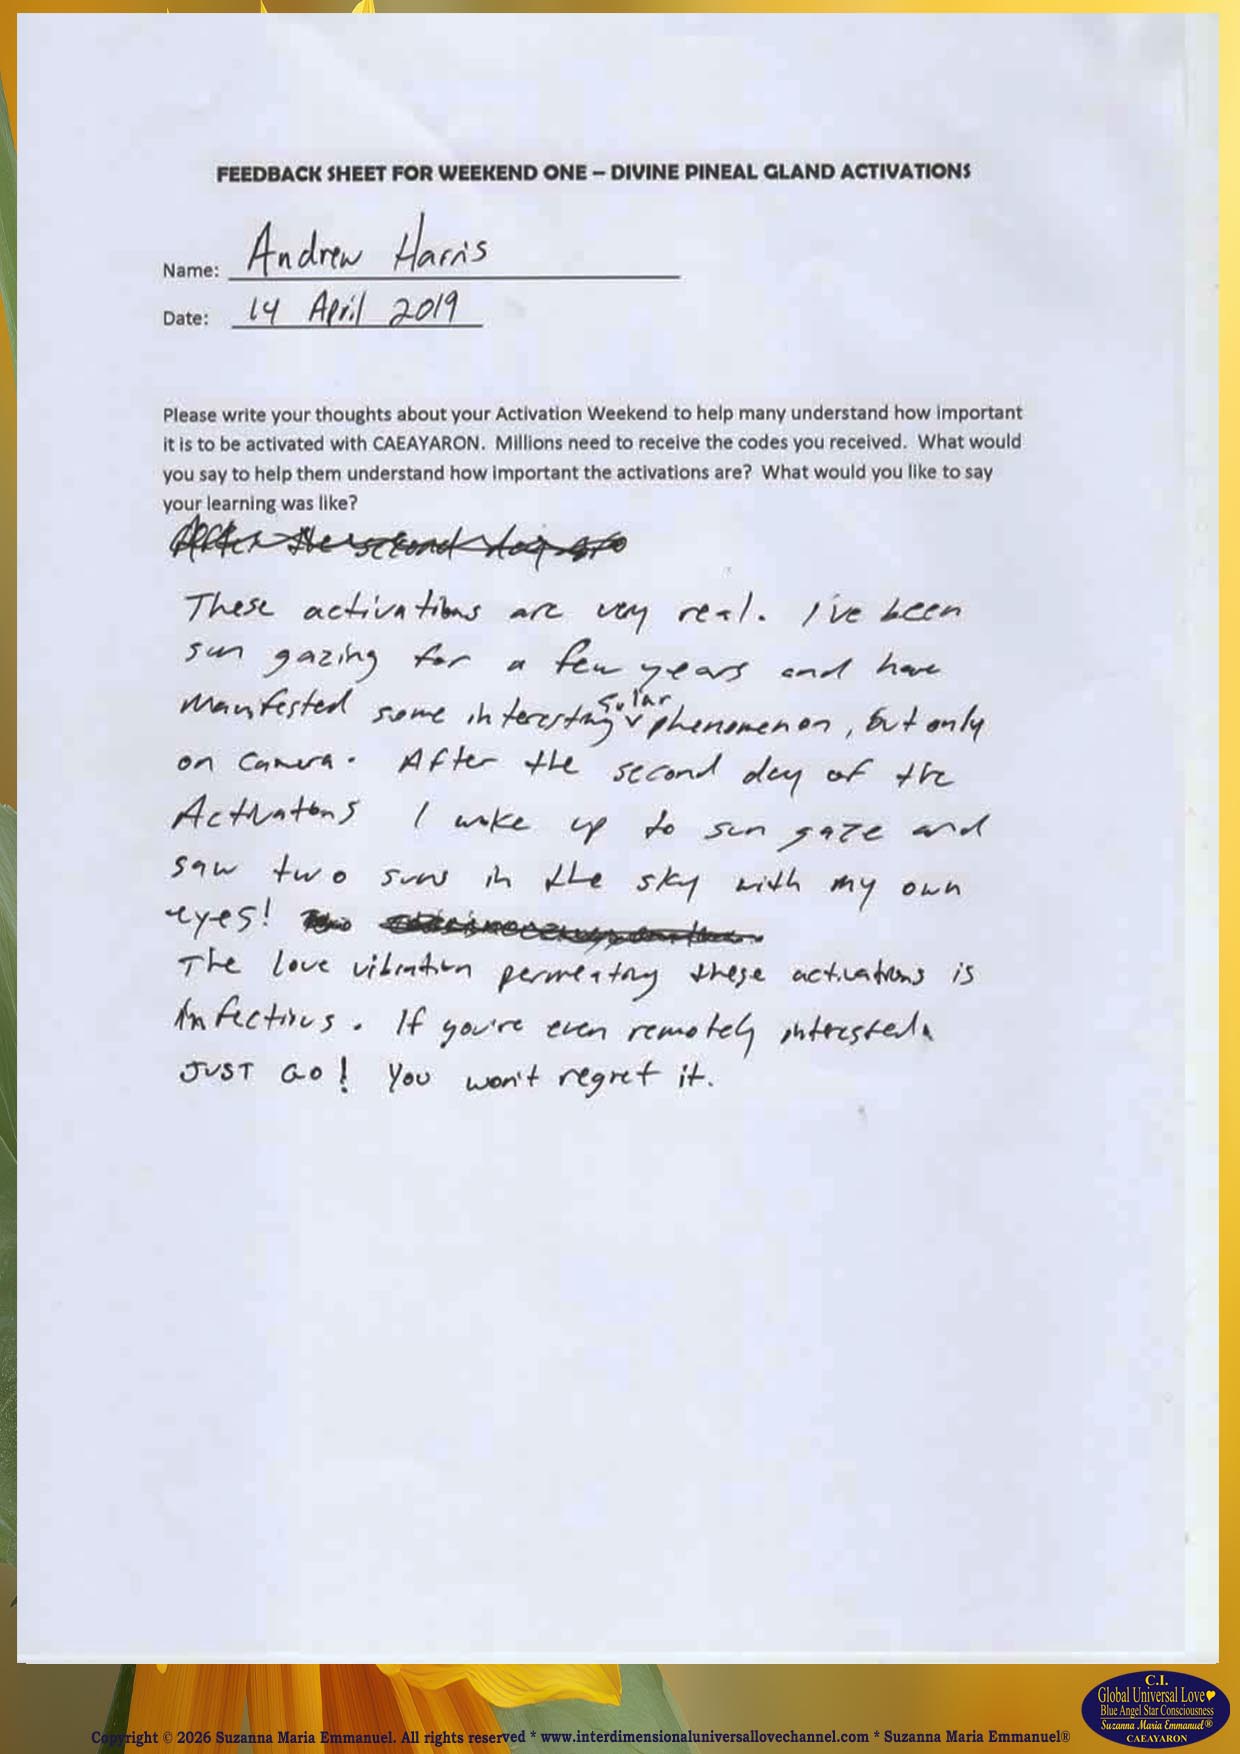 FEEDBACK SHEET FOR WEEKEND ONE – DIVINE PINEAL GLAND ACTIVATIONS
Name: Andrew Harris
Date: 14 April 2019
Please write your thoughts about your Activation Weekend to help many understand how important
it is to be activated with CAEAYARON. Millions need to receive the codes you received. What would
you say to help them understand how important the activations are? What would you like to say
your learning was like?
After the second day
These activations are very real. I've been
sun gazing for a few years and have
manifested some interesting solar phenomenon, but only
on camera. After the second day of the
Activations I woke up to sun gaze and
saw two suns in the sky with my own
eyes!
The love vibration permeating these activations is
infectious. If you're even remotely interested
JUST GO! You won't regret it.
C.I.
Global Universal Love
Blue Angel Star Consciousness
Suzanna Maria Emmanuel®
CAEAYARON
Copyright © 2026 Suzanna Maria Emmanuel. All rights reserved * www.interdimensionaluniversallovechannel.com * Suzanna Maria Emmanuel®